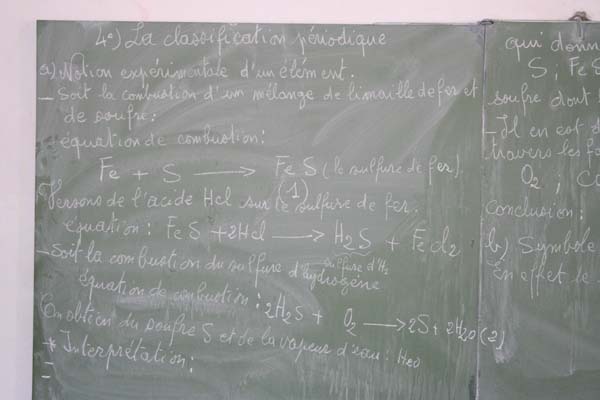 4°) La classification périodique
a) Notion expérimentale d'un élément.
- Soit la combustion d'un mélange de limaille de fer et
de soufre:
équation de combustion:
Fe + S → FeS (le sulfure de fer)
(1)
Versons de l'acide Hcl sur le sulfure de fer.
équation: FeS + 2Hcl → H2S + Fecl2
sulfure d'H2
- Soit la combustion du sulfure d'hydrogène
équation de combustion: 2H2S + O2 → 2S + 2H2O (2)
On obtien du soufre S et de la vapeur d'eau: H2O
* Interprétation:
-
qui donn
S, FeS
soufre dont l
- Il en est d
travers les fo
O2; CO
conclusion:
b) Symbole
En effet le